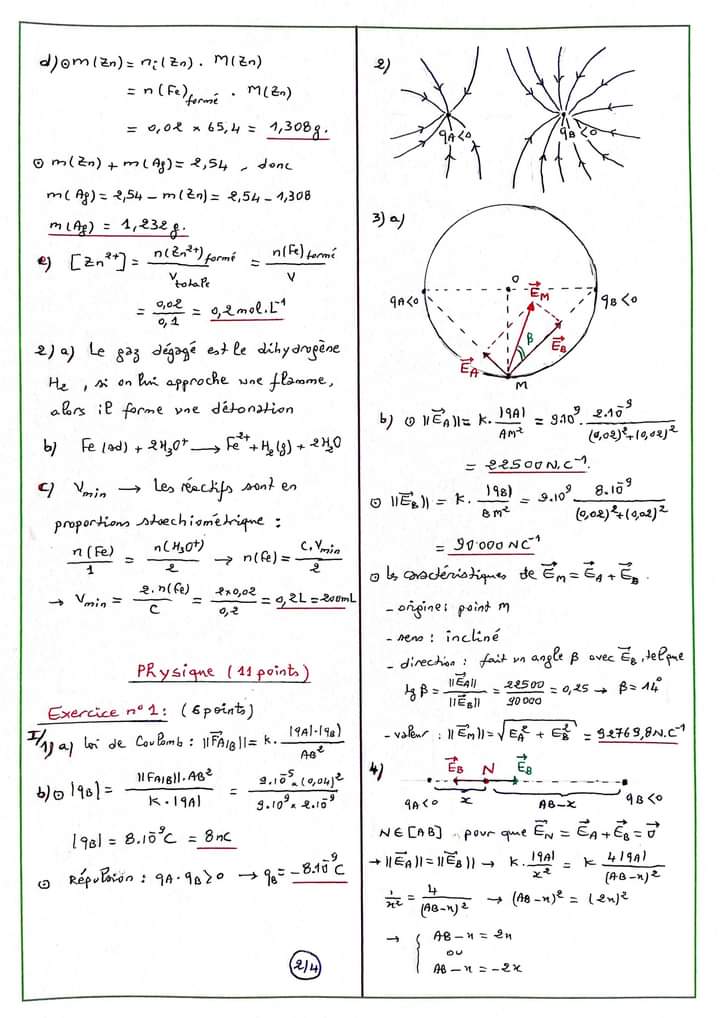 d) ⊙ m(Zn) = ni(Zn) . M(Zn)
= n(Fe)formé . M(Zn)
= 0,02 × 65,4 = 1,308g.
⊙ m(Zn) + m(Ag) = 2,54 , donc
m(Ag) = 2,54 - m(Zn) = 2,54 - 1,308
m(Ag) = 1,232g.
e) [Zn²⁺] = n(Zn²⁺)formé / Vtotale = n(Fe)formé / V
= 0,02 / 0,1 = 0,2 mol.L⁻¹
2) a) Le gaz dégagé est le dihydrogène
H₂ , si on lui approche une flamme,
alors il forme une détonation
b) Fe(sd) + 2H₃O⁺ → Fe²⁺ + H₂(g) + 2H₂O
c) Vmin → Les réactifs sont en
proportions stœchiométrique :
n(Fe) / 1 = n(H₃O⁺) / 2 → n(Fe) = C.Vmin / 2
→ Vmin = 2.n(Fe) / C = 2×0,02 / 0,2 = 0,2L = 200mL
PHysique (11 points)
Exercice n° 1 : (6 points)
I/ 1) a) Loi de Coulomb : ||F⃗A/B|| = k. |qA|.|qB| / AB²
b) ⊙ |qB| = ||FA/B||.AB² / K.|qA| = 9.10⁻⁵ × (0,04)² / 9.10⁹ × 2.10⁻⁹
|qB| = 8.10⁻⁹C = 8nC
⊙ Répulsion : qA.qB > 0 → qB = -8.10⁻⁹C
2/4
2)
qA<0
qB<0
3) a)
O
qA<0
E⃗M
qB<0
β
E⃗A
E⃗B
M
b) ⊙ ||E⃗A|| = k. |qA| / AM² = 9.10⁹. 2.10⁻⁹ / (0,02)²+(0,02)²
= 22500 N.C⁻¹.
⊙ ||E⃗B|| = k. |qB| / BM² = 9.10⁹. 8.10⁻⁹ / (0,02)²+(0,02)²
= 90000 NC⁻¹
⊙ les caractéristiques de E⃗M = E⃗A + E⃗B.
- origine : point M
- sens : incliné
- direction : fait un angle β avec E⃗B, tel que
tg β = ||E⃗A|| / ||E⃗B|| = 22500 / 90000 = 0,25 → β = 14°
- valeur : ||E⃗M|| = √(EA² + EB²) = 92769,8 N.C⁻¹
4)
E⃗B N E⃗B
qA<0 x AB-x qB<0
N∈[AB] pour que E⃗N = E⃗A + E⃗B = 0⃗
→ ||E⃗A|| = ||E⃗B|| → k. |qA| / x² = k 4|qA| / (AB-x)²
1/x² = 4 / (AB-x)² → (AB-x)² = (2x)²
→ { AB-x = 2x
ou
AB-x = -2x